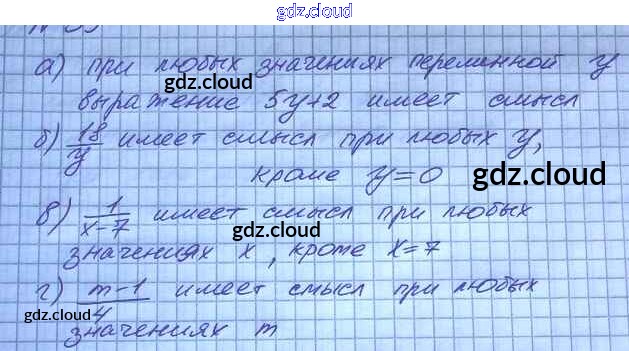 gdz.cloud
а) при любых значениях переменной y
gdz.cloud
выражение 5y+2 имеет смысл
б) 18/y имеет смысл при любых y,
gdz.cloud
кроме y=0 gdz.cloud
в) 1/x-7 имеет смысл при любых
gdz.cloud
значениях x, кроме x=7
г) m-1/4 имеет смысл при любых
gdz.cloud
значениях m